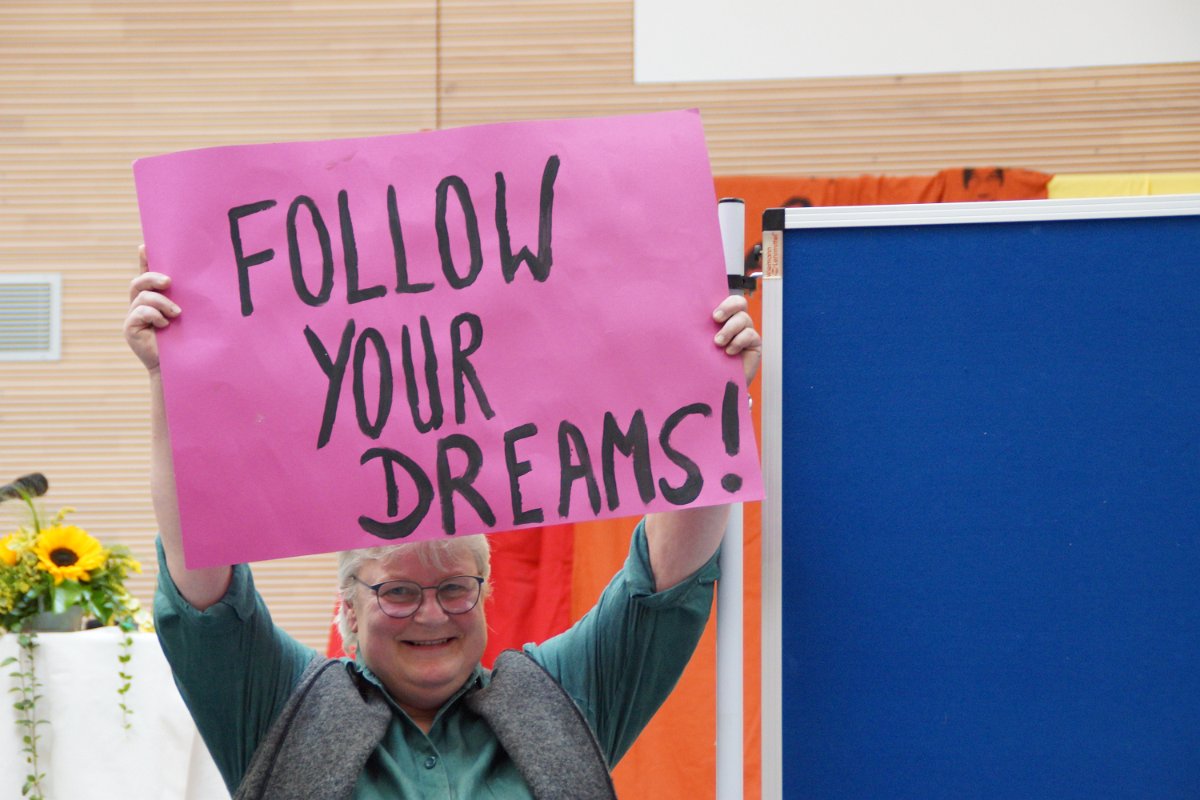 FOLLOW
YOUR
DREAMS!